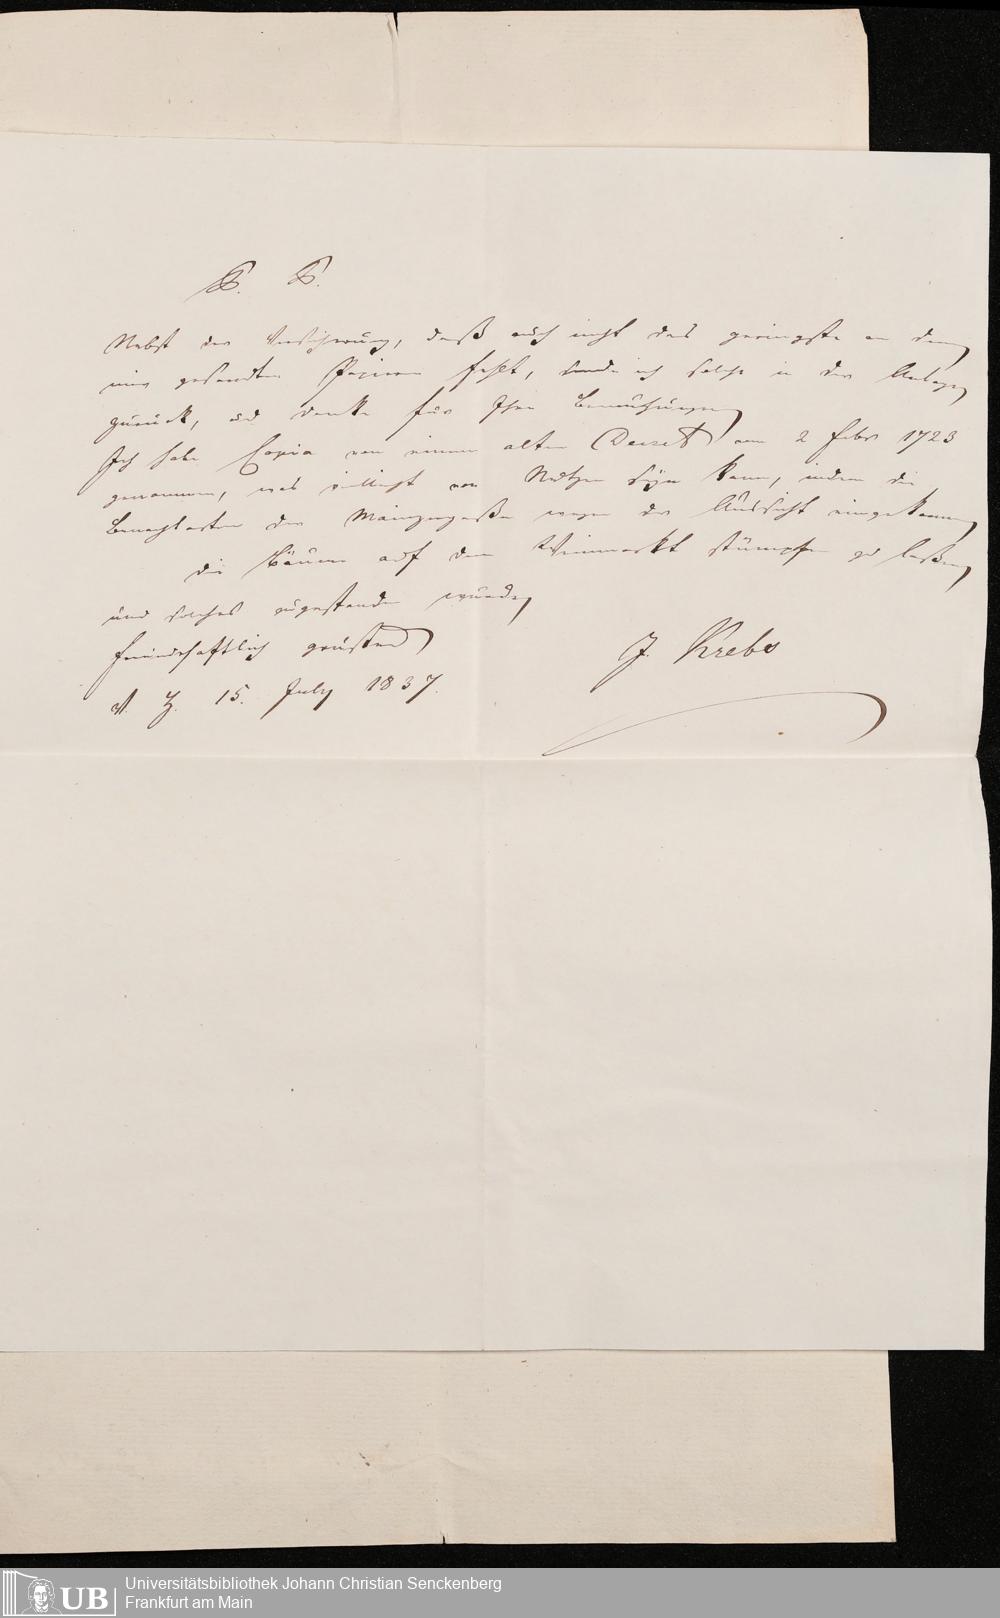 P. P.
Nebst der Versicherung, daß auch nicht das geringste an denen
mir gesandten Papieren fehlt, sende ich solche in der Anlage
zurück, und danke für Ihre Bemühungen
Ich habe Copia von einem alten Decret vom 2 Febr 1723
genommen, was vielleicht von Nutzen seyn kann, indem die
Benachbarten der Mainzergasse wegen der Aussicht eingekommen
die Bäume auf dem Weinmarkt stümpfen zu lassen
und solches zugestanden wurde
freundschaftlich grüßend
J. Krebs
V. H. 15. July 1837.
UB
Universitätsbibliothek Johann Christian Senckenberg
Frankfurt am Main